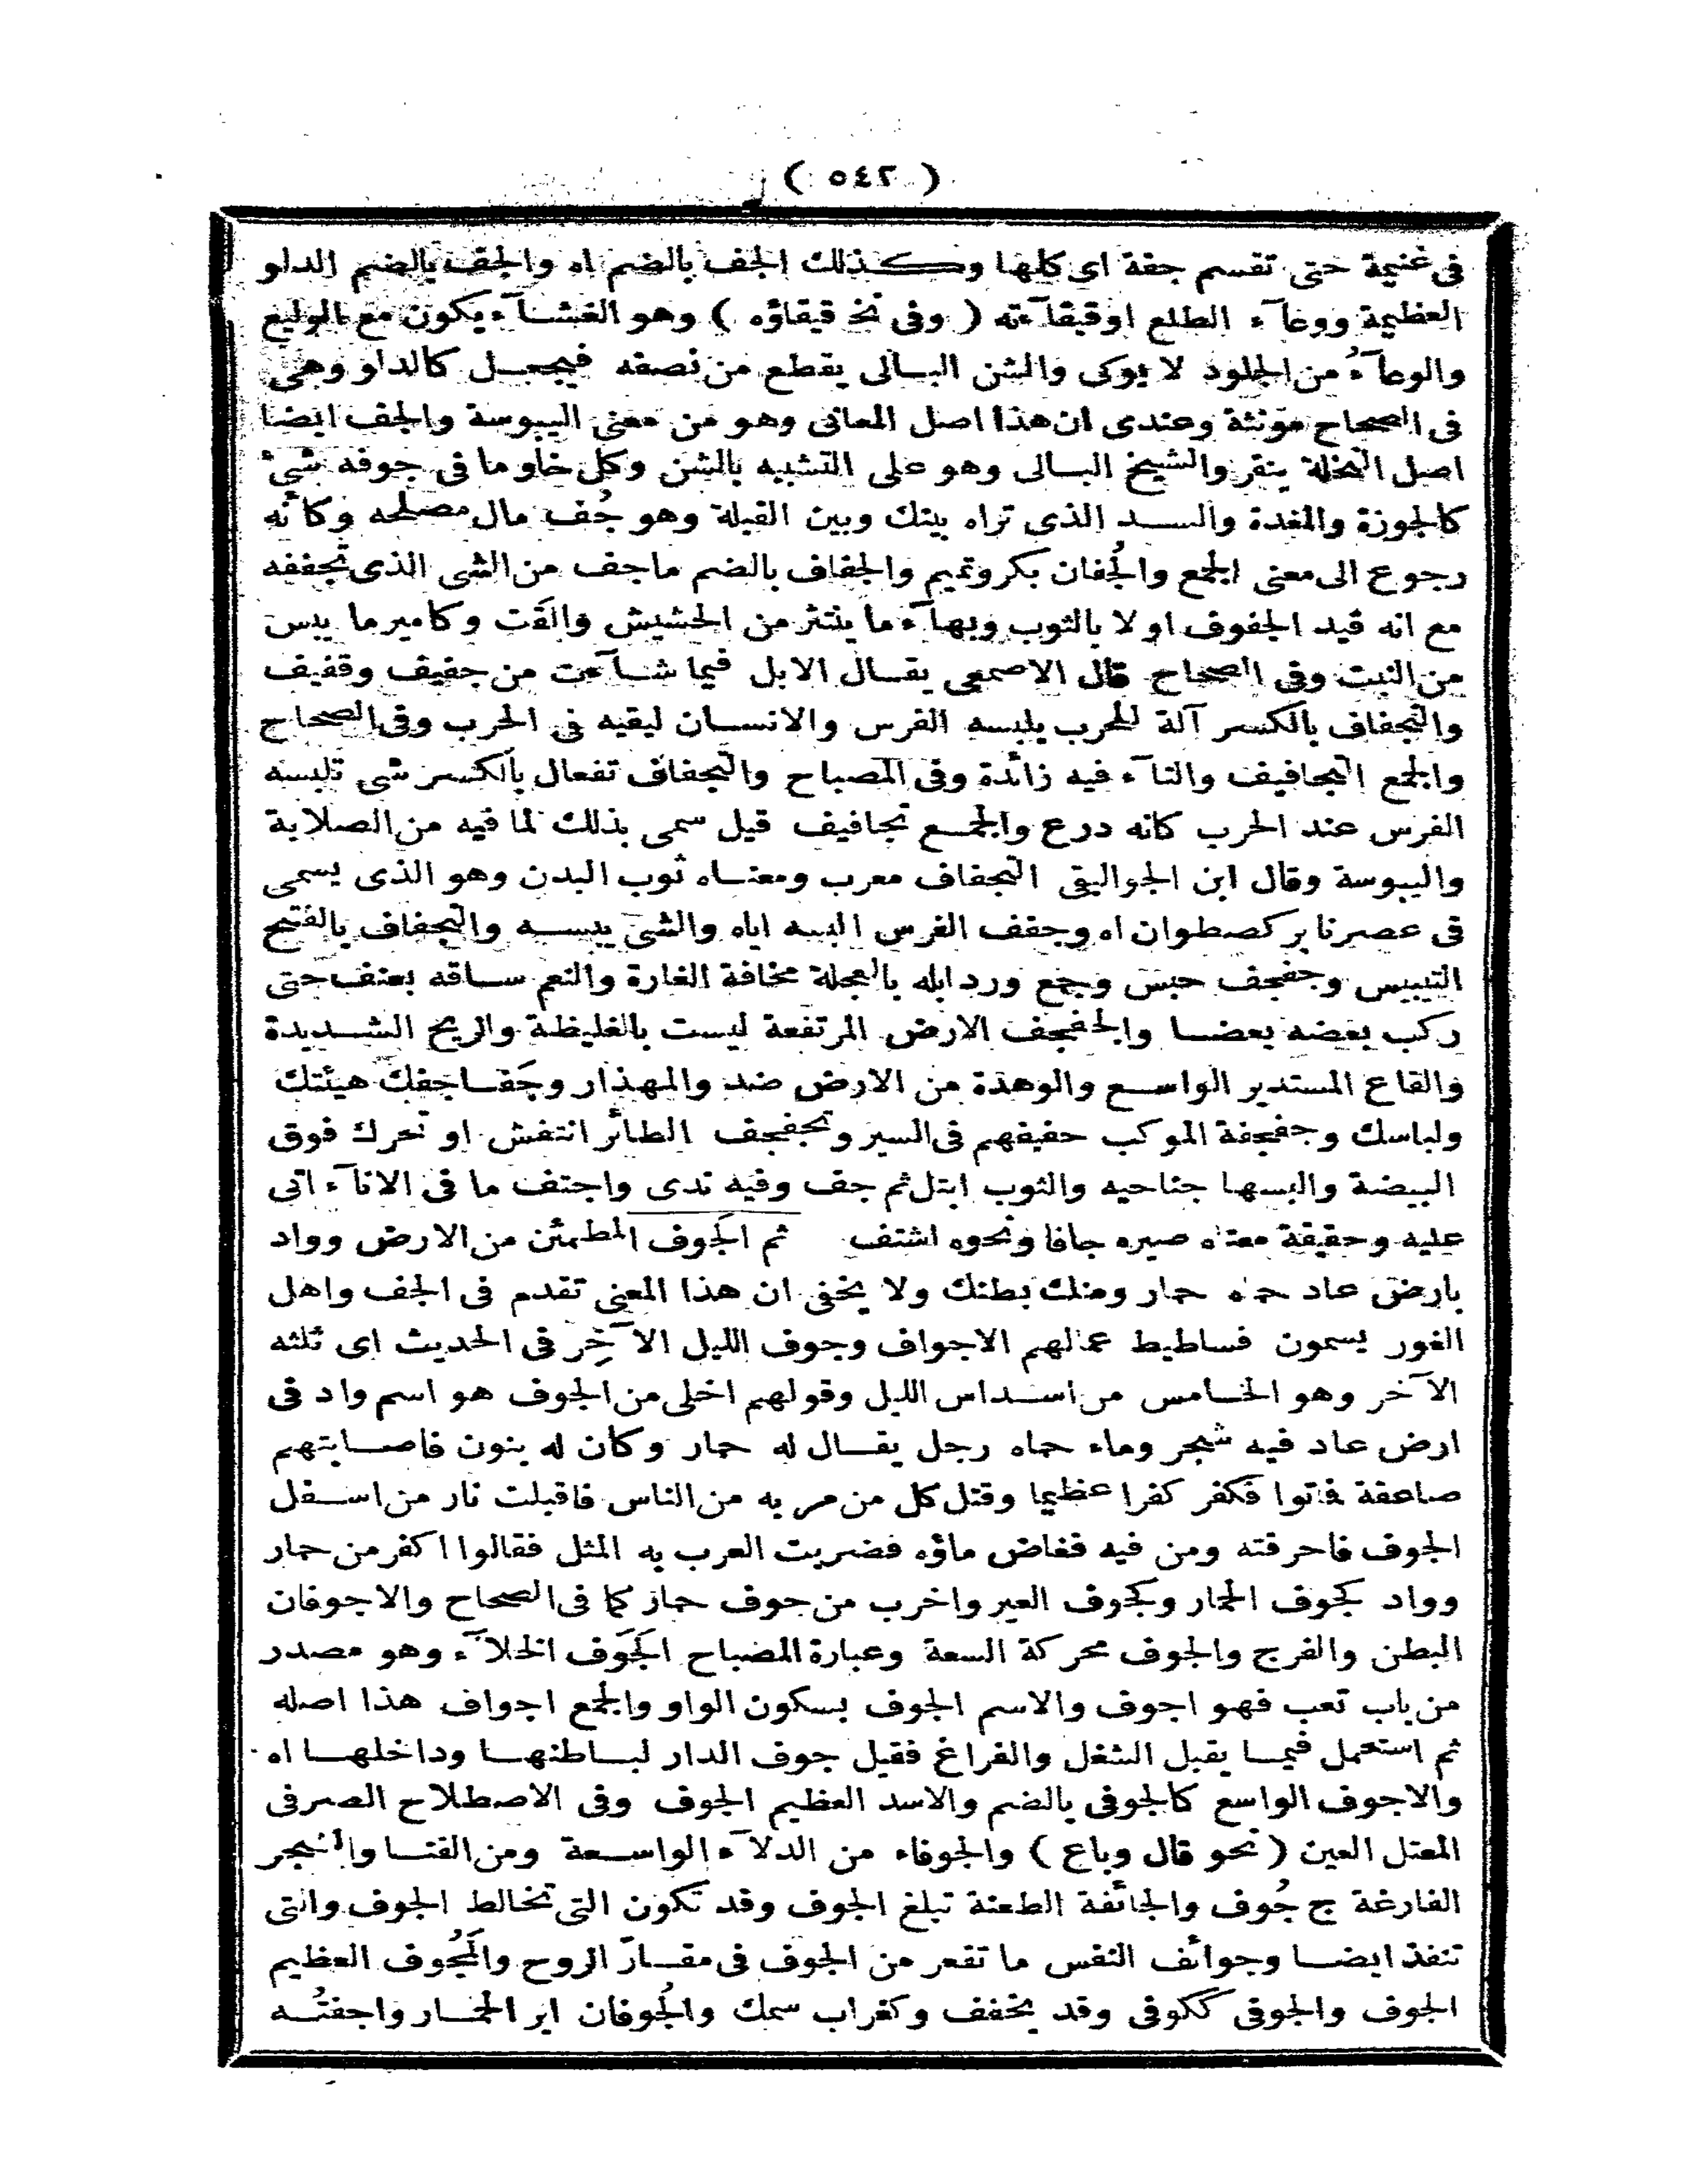 ( ٥٤٢ )
فى غنيمة حتى تقسم جفة اى كلها وكذلك الجف بالضم اه والجف بالضم الدلو
العظيمة ووعآء الطلع اوقيقآءته ( وفى نخ قيقاؤه ) وهو الغشآء يكون مع الوليع
والوعآءُ من الجلود لا يوكى والشن البالى يقطع من نصفه فيجعل كالدلو وهى
فى الصحاح مؤنثة وعندى ان هذا اصل المعانى وهو من معنى اليبوسة والجف ايضا
اصل النخلة ينقر والشيخ البالى وهو على التشبيه بالشن وكل خاو ما فى جوفه شئ
كالجوزة والمغدة والسد الذى تراه بينك وبين القبلة وهو جُف مال مصلحه وكانه
رجوع الى معنى الجمع والجُفان بكر وتميم والجفاف بالضم ماجف من الشى الذى تجففه
مع انه قيد الجفوف اولا بالثوب وبهآء ما ينتثر من الحشيش والقَت وكامير ما يبس
من النبت وفى الصحاح قال الاصمعى يقال الابل فيما شآءت من جفيف وقفيف
والتجفاف بالكسر آلة للحرب يلبسه الفرس والانسان ليقيه فى الحرب وفى الصحاح
والجمع التجافيف والتآء فيه زائدة وفى المصباح والتجفاف تفعال بالكسر شى تلبسه
الفرس عند الحرب كانه درع والجمع تجافيف قيل سمى بذلك لما فيه من الصلابة
واليبوسة وقال ابن الجواليقى التجفاف معرب ومعناه ثوب البدن وهو الذى يسمى
فى عصرنا بركصطوان اه وجفف الفرس البسه اياه والشى يبسه والتجفاف بالفتح
التيبيس وجفجف حبس وجمع ورد ابله بالعجلة مخافة الغارة والنعم ساقه بعنف حتى
ركب بعضه بعضا والجفجف الارض المرتفعة ليست بالغليظة والريح الشديدة
والقاع المستدير الواسع والوهدة من الارض ضد والمهذار وجَفاجفك هيئتك
ولباسك وجفجفة الموكب حفيفهم فى السير وتجفجف الطائر انتفش او تحرك فوق
البيضة والبسها جناحيه والثوب ابتل ثم جف وفيه ندى واجتف ما فى الانآء اتى
عليه وحقيقة معناه صيره جافا ونحوه اشتف ثم الجَوف المطمئن من الارض وواد
بارض عاد حماه حمار ومنك بطنك ولا يخفى ان هذا المعنى تقدم فى الجف واهل
الغور يسمون فساطيط عمالهم الاجواف وجوف الليل الآخِر فى الحديث اى ثلثه
الآخر وهو الخامس من اسداس الليل وقولهم اخلى من الجوف هو اسم واد فى
ارض عاد فيه شجر وماء حماه رجل يقال له حمار وكان له بنون فاصابتهم
صاعقة فماتوا فكفر كفرا عظيما وقتل كل من مر به من الناس فاقبلت نار من اسفل
الجوف فاحرقته ومن فيه فغاض ماؤه فضربت العرب به المثل فقالوا اكفر من حمار
وواد كجوف الحمار وكجوف العير واخرب من جوف حمار كما فى الصحاح والاجوفان
البطن والفرج والجوف محركة السعة وعبارة المصباح الجَوَف الخلآء وهو مصدر
من باب تعب فهو اجوف والاسم الجوف بسكون الواو والجمع اجواف هذا اصله
ثم استعمل فيما يقبل الشغل والفراغ فقيل جوف الدار لباطنها وداخلها اه
والاجوف الواسع كالجوفى بالضم والاسد العظيم الجوف وفى الاصطلاح الصرفى
المعتل العين ( نحو قال وباع ) والجوفاء من الدلآء الواسعة ومن القنا والشجر
الفارغة ج جُوف والجائفة الطعنة تبلغ الجوف وقد تكون التى تخالط الجوف والتى
تنفذ ايضا وجوائف النفس ما تقعر من الجوف فى مقارّ الروح والمَجُوف العظيم
الجوف والجوفى ككوفى وقد يخفف وكغراب سمك والجُوفان اير الحمار واجفتُه